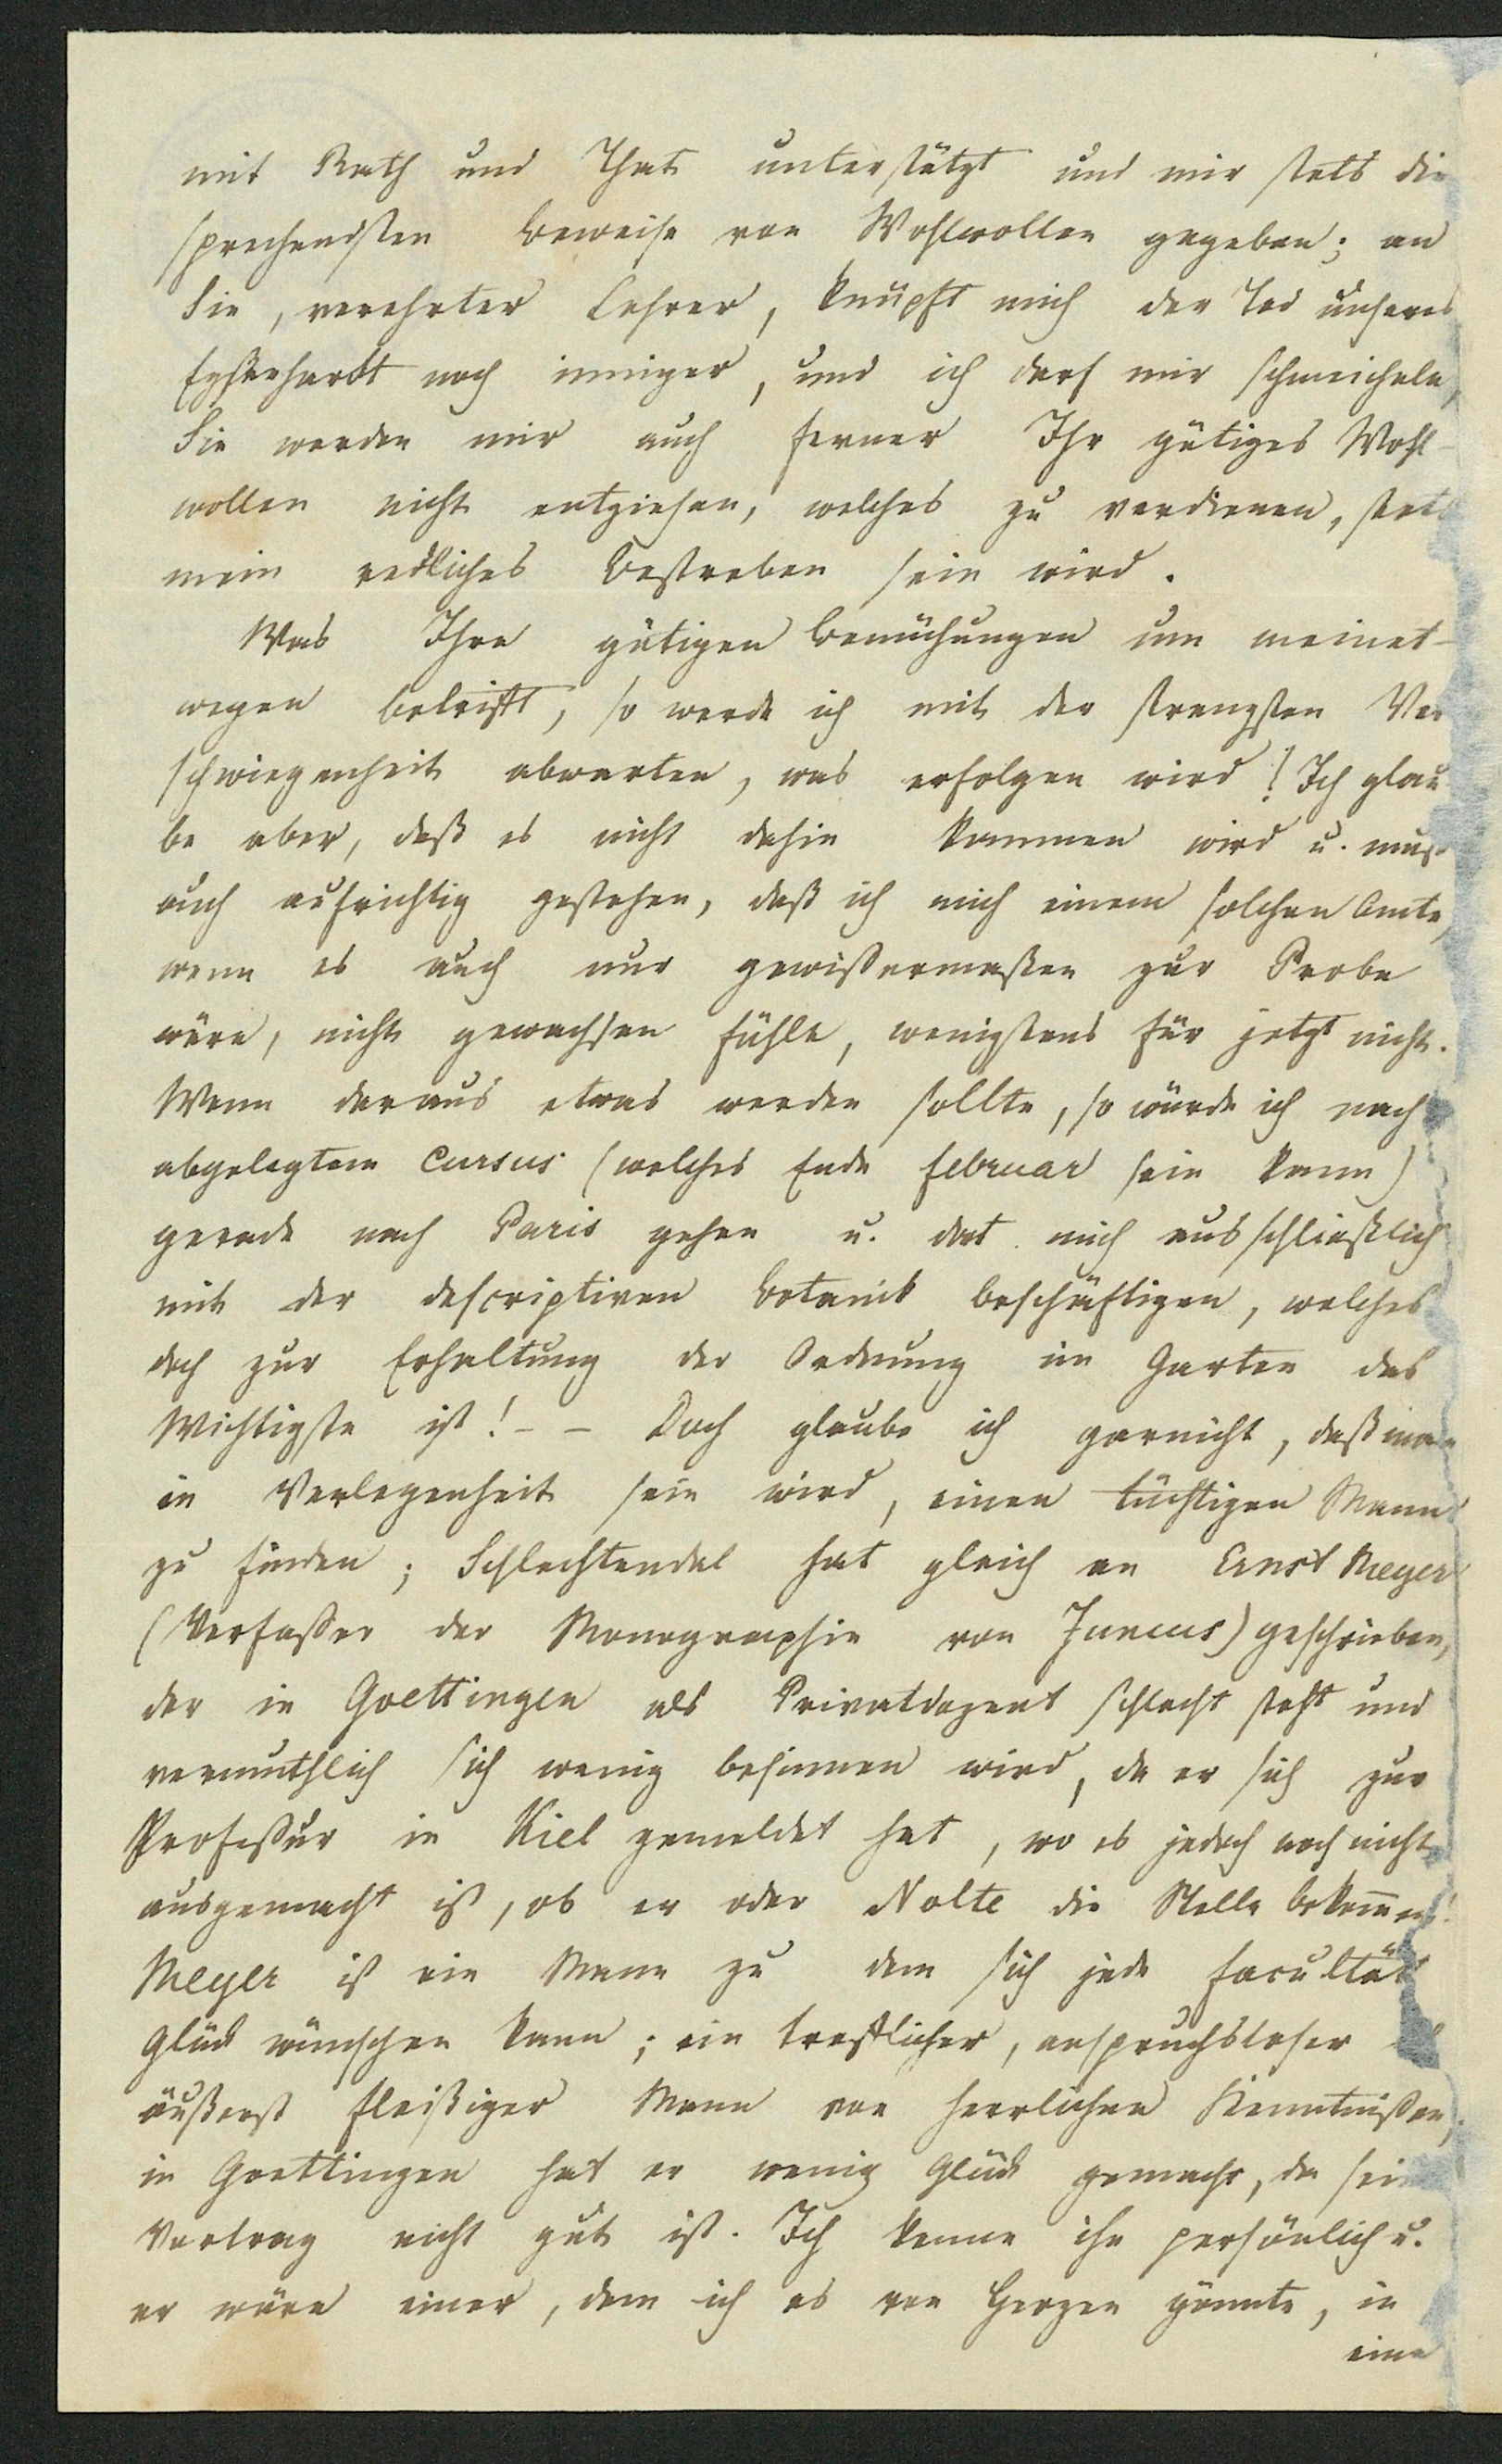 mit Rath und That unterstützt und mir stets die
sprechendsten Beweise von Wohlwollen gegeben; an
Sie, verehrter Lehrer, knüpft mich der Tod unseres
Eysenhardt noch inniger, und ich darf mir schmeicheln,
Sie werden mir auch ferner Ihr gütiges Wohl-
wollen nicht entziehen, welches zu verdienen, stets
mein redliches Bestreben sein wird.
Was Ihre gütigen Bemühungen um meinet-
wegen betrifft, so werde ich mit der strengsten Ver
schwiegenheit abwarten, was erfolgen wird! Ich glau
be aber, daß es nicht dahin kommen wird u. muß
auch aufrichtig gestehen, daß ich mich einem solchen Amte,
wenn es auch nur gewißermaßen zur Probe
wäre, nicht gewachsen fühle, wenigstens für jetzt nicht.
Wenn daraus etwas werden sollte, so würde ich nach
abgelegtem Cursus (welches Ende Februar sein kann)
gerade nach Paris gehen u. dort mich ausschließlich
mit der descriptiven Botanik beschäftigen, welches
doch zur Erhaltung der Ordnung im Garten das
Wichtigste ist! – – Doch glaube ich garnicht, daß man
in Verlegenheit sein wird, einen tüchtigen Mann
zu finden; Schlechtendal hat gleich an Ernst Meyer
(Verfaßer der Monographie von Juncus) geschrieben,
der in Goettingen als Privatdozent schlecht steht und
vermuthlich sich wenig besinnen wird, da er sich zur
Profeßur in Kiel gemeldet hat, wo es jedoch noch nicht
ausgemacht ist, ob er oder Nolte die Stelle bekommen.
Meyer ist ein Mann zu dem sich jede Facultät
Glück wünschen kann; ein trefflicher, anspruchsloser
äußerst fleißiger Mann von herrlichen Kenntnißen;
in Goettingen hat er wenig Glück gemacht, da sein
Vortrag nicht gut ist. Ich kenne ihn persönlich u.
er wäre einer, dem ich es von Herzen gönnte, in
eine